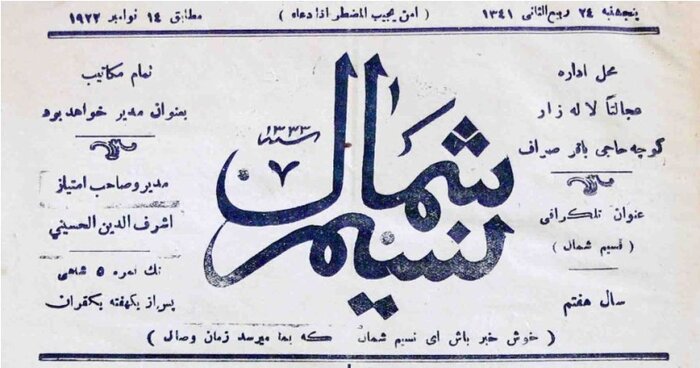 پنجشنبه ۲۴ ربیع الثانی ۱۳۴۱
( امن یجیب المضطر اذا دعاه )
مطابق ۱۴ نوامبر ۱۹۲۲
محل اداره
عجالتاً لاله زار
کوچه حاجی باقر صراف
عنوان تلگرافی
( نسیم شمال )
سال هفتم
نسیم شمال
سنه ۱۳۳۳
۷
تمام مکاتیب
بعنوان مدیر خواهد بود
مدیر و صاحب امتیاز
اشرف الدین الحسینی
تك نمره ۵ شاهی
پس از یکهفته یکقران
( خوش خبر باش ای نسیم شمال که بما میرسد زمان وصال )